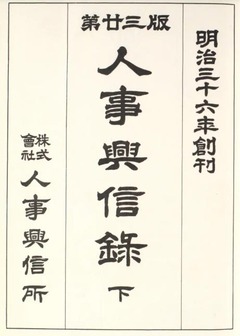 明治三十六年創刊
第廿三版
人事興信錄 下
株式會社 人事興信所